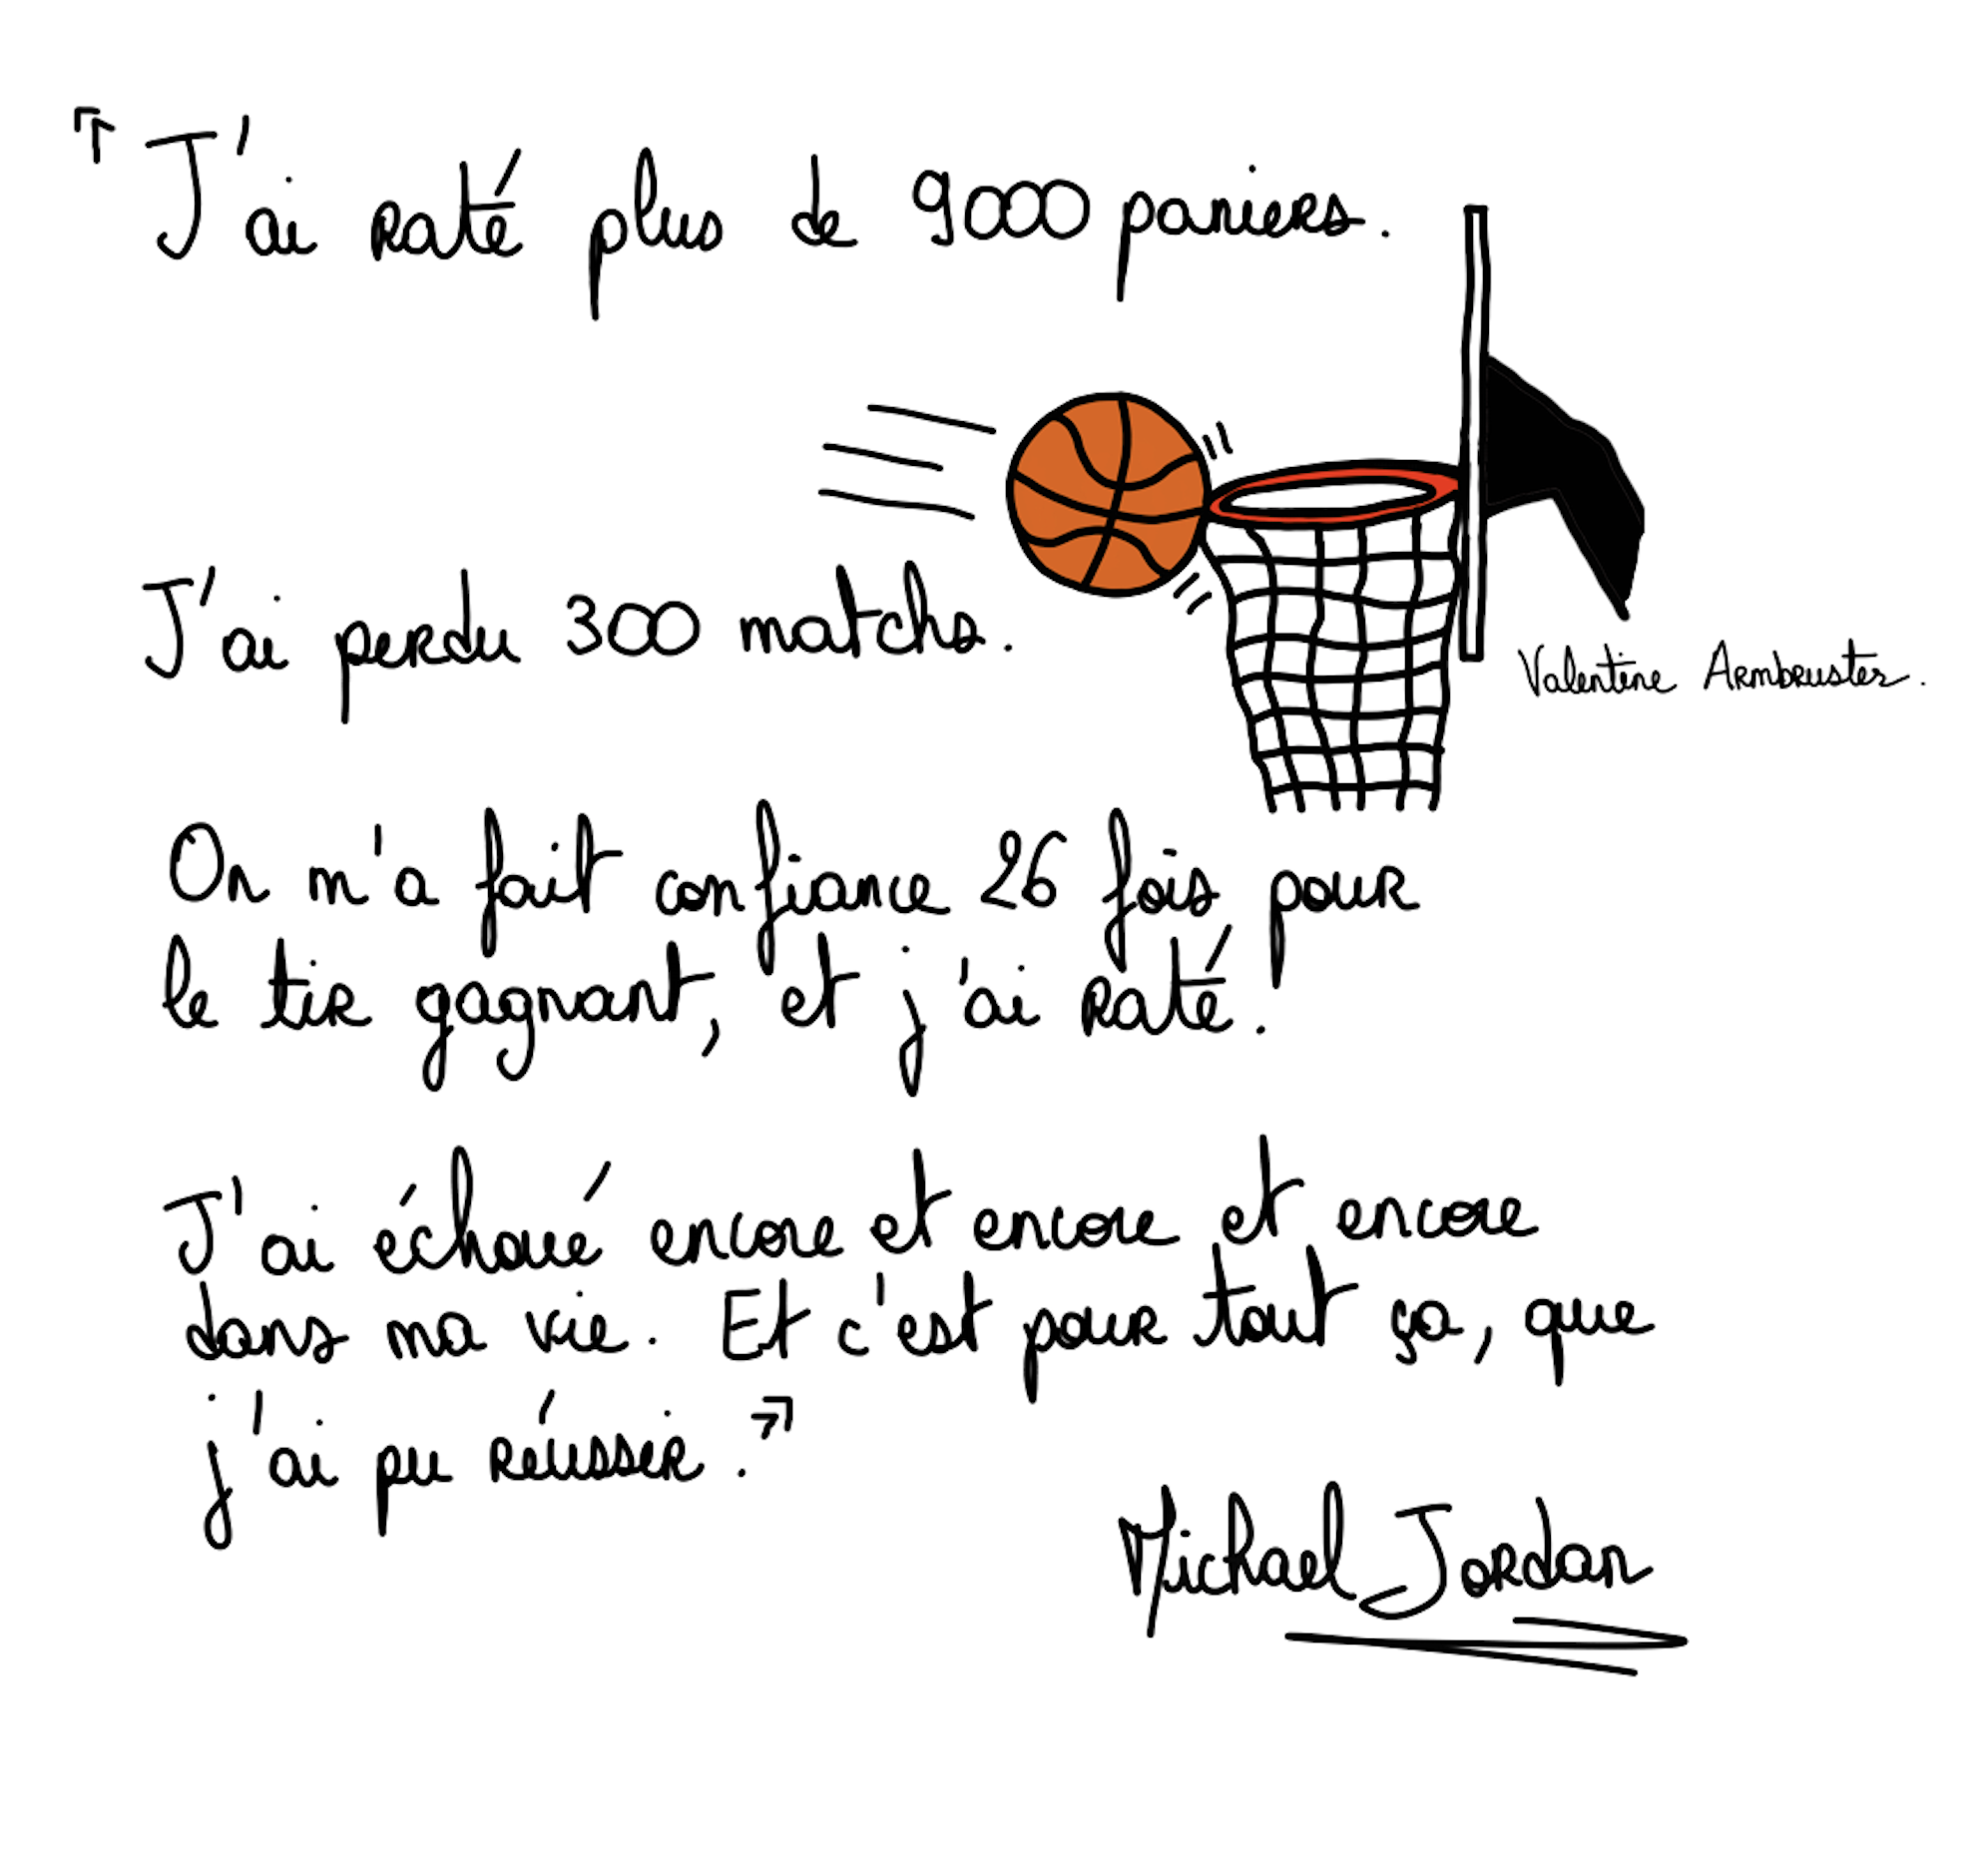 "J'ai raté plus de 9000 paniers.
J'ai perdu 300 matchs.
Valentine Armbruster.
On m'a fait confiance 26 fois pour
le tir gagnant, et j'ai raté.
J'ai échoué encore et encore et encore
dans ma vie. Et c'est pour tout ça, que
j'ai pu réussir."
Michael Jordan